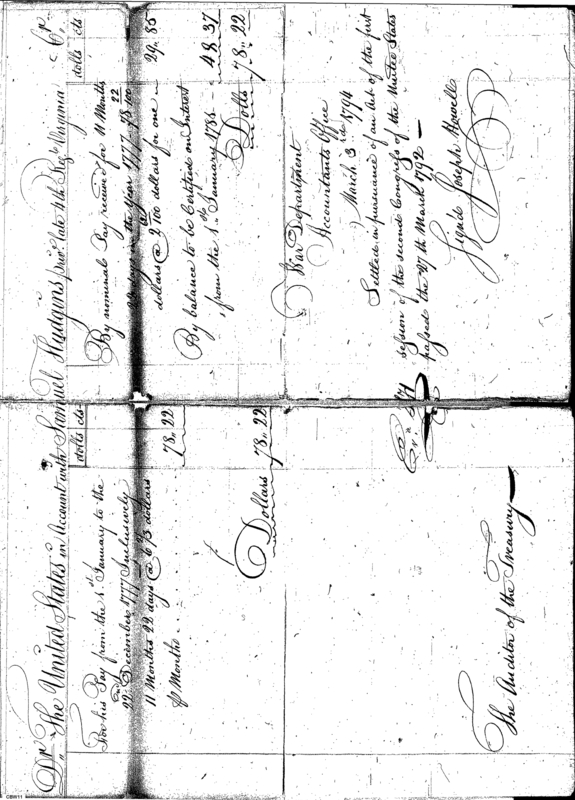 Dr. The United States in Account with Samuel Hudgins priv. late 4th Regt. Virginia Cr.
dolls cts
For his Pay from the 1st. January to the
22nd December 1777 Inclusively
11 Months 22 days @ 6 2/3 dollars
pr Month . . . . . . . 78.. 22
Dollars 78.. 22
dolls cts
By nominal Pay received for 11 Months
22 days in the year 1777. 78 22/100
dollars @ 2 /100 dollars for one 29.. 85
By balance to be Certified on Interest
from the 1st January 1785 48.. 37
Dolls 78.. 22
War Department
Accountants Office
March 3rd 1794
Settled in pursuance of an Act of the first
session of the second Congress of the United States
passed the 27th March 1792 —
Signed Joseph Howell
The Auditor of the Treasury
CBR11